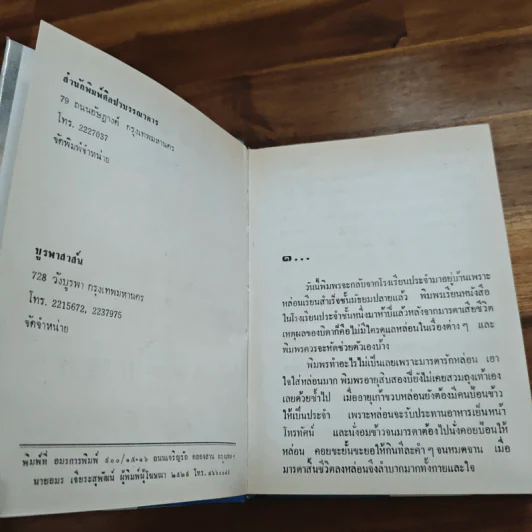 สำนักพิมพ์ศิลปาบรรณาคาร
79 ถนนอัษฎางค์ กรุงเทพมหานคร
โทร. 2227037
จัดพิมพ์จำหน่าย
บูรพาสาส์น
728 วังบูรพา กรุงเทพมหานคร
โทร. 2215672, 2237975
จัดจำหน่าย
พิมพ์ที่ อมรการพิมพ์ ๕๐๐/๑๕-๑๖ ถนนเจริญรัถ คลองสาน
นายอมร เจียระสุพัฒน์ ผู้พิมพ์ผู้โฆษณา ๒๕๒๕ โทร.
๑...
วันนี้พิมพรจะกลับจากโรงเรียนประจำมาอยู่บ้านเพราะ
หล่อนเรียนสำเร็จชั้นมัธยมปลายแล้ว พิมพรเรียนหนังสือ
ในโรงเรียนประจำชั้นหนึ่งมาห้าปีแล้วหลังจากมารดาเสียชีวิต
เหตุผลของบิดาก็คือไม่มีใครดูแลหล่อนในเรื่องต่างๆ และ
พิมพรควรจะหัดช่วยตัวเองบ้าง
พิมพรทำอะไรไม่เป็นเลยเพราะมารดารักหล่อน เอา
ใจใส่หล่อนมาก พิมพรอายุสิบสองปียังไม่เคยสวมถุงเท้าเอง
เลยด้วยซ้ำไป เมื่ออายุเก้าขวบหล่อนยังต้องมีคนป้อนข้าว
ให้เป็นประจำ เพราะหล่อนจะรับประทานอาหารเย็นหน้า
โทรทัศน์ และนั่งอมข้าวจนมารดาต้องไปนั่งคอยป้อนให้
หล่อน คอยขะยั้นขะยอให้กินทีละคำๆ จนหมดจาน เมื่อ
มารดาสิ้นชีวิตลงหล่อนจึงลำบากมากทั้งกายและใจ